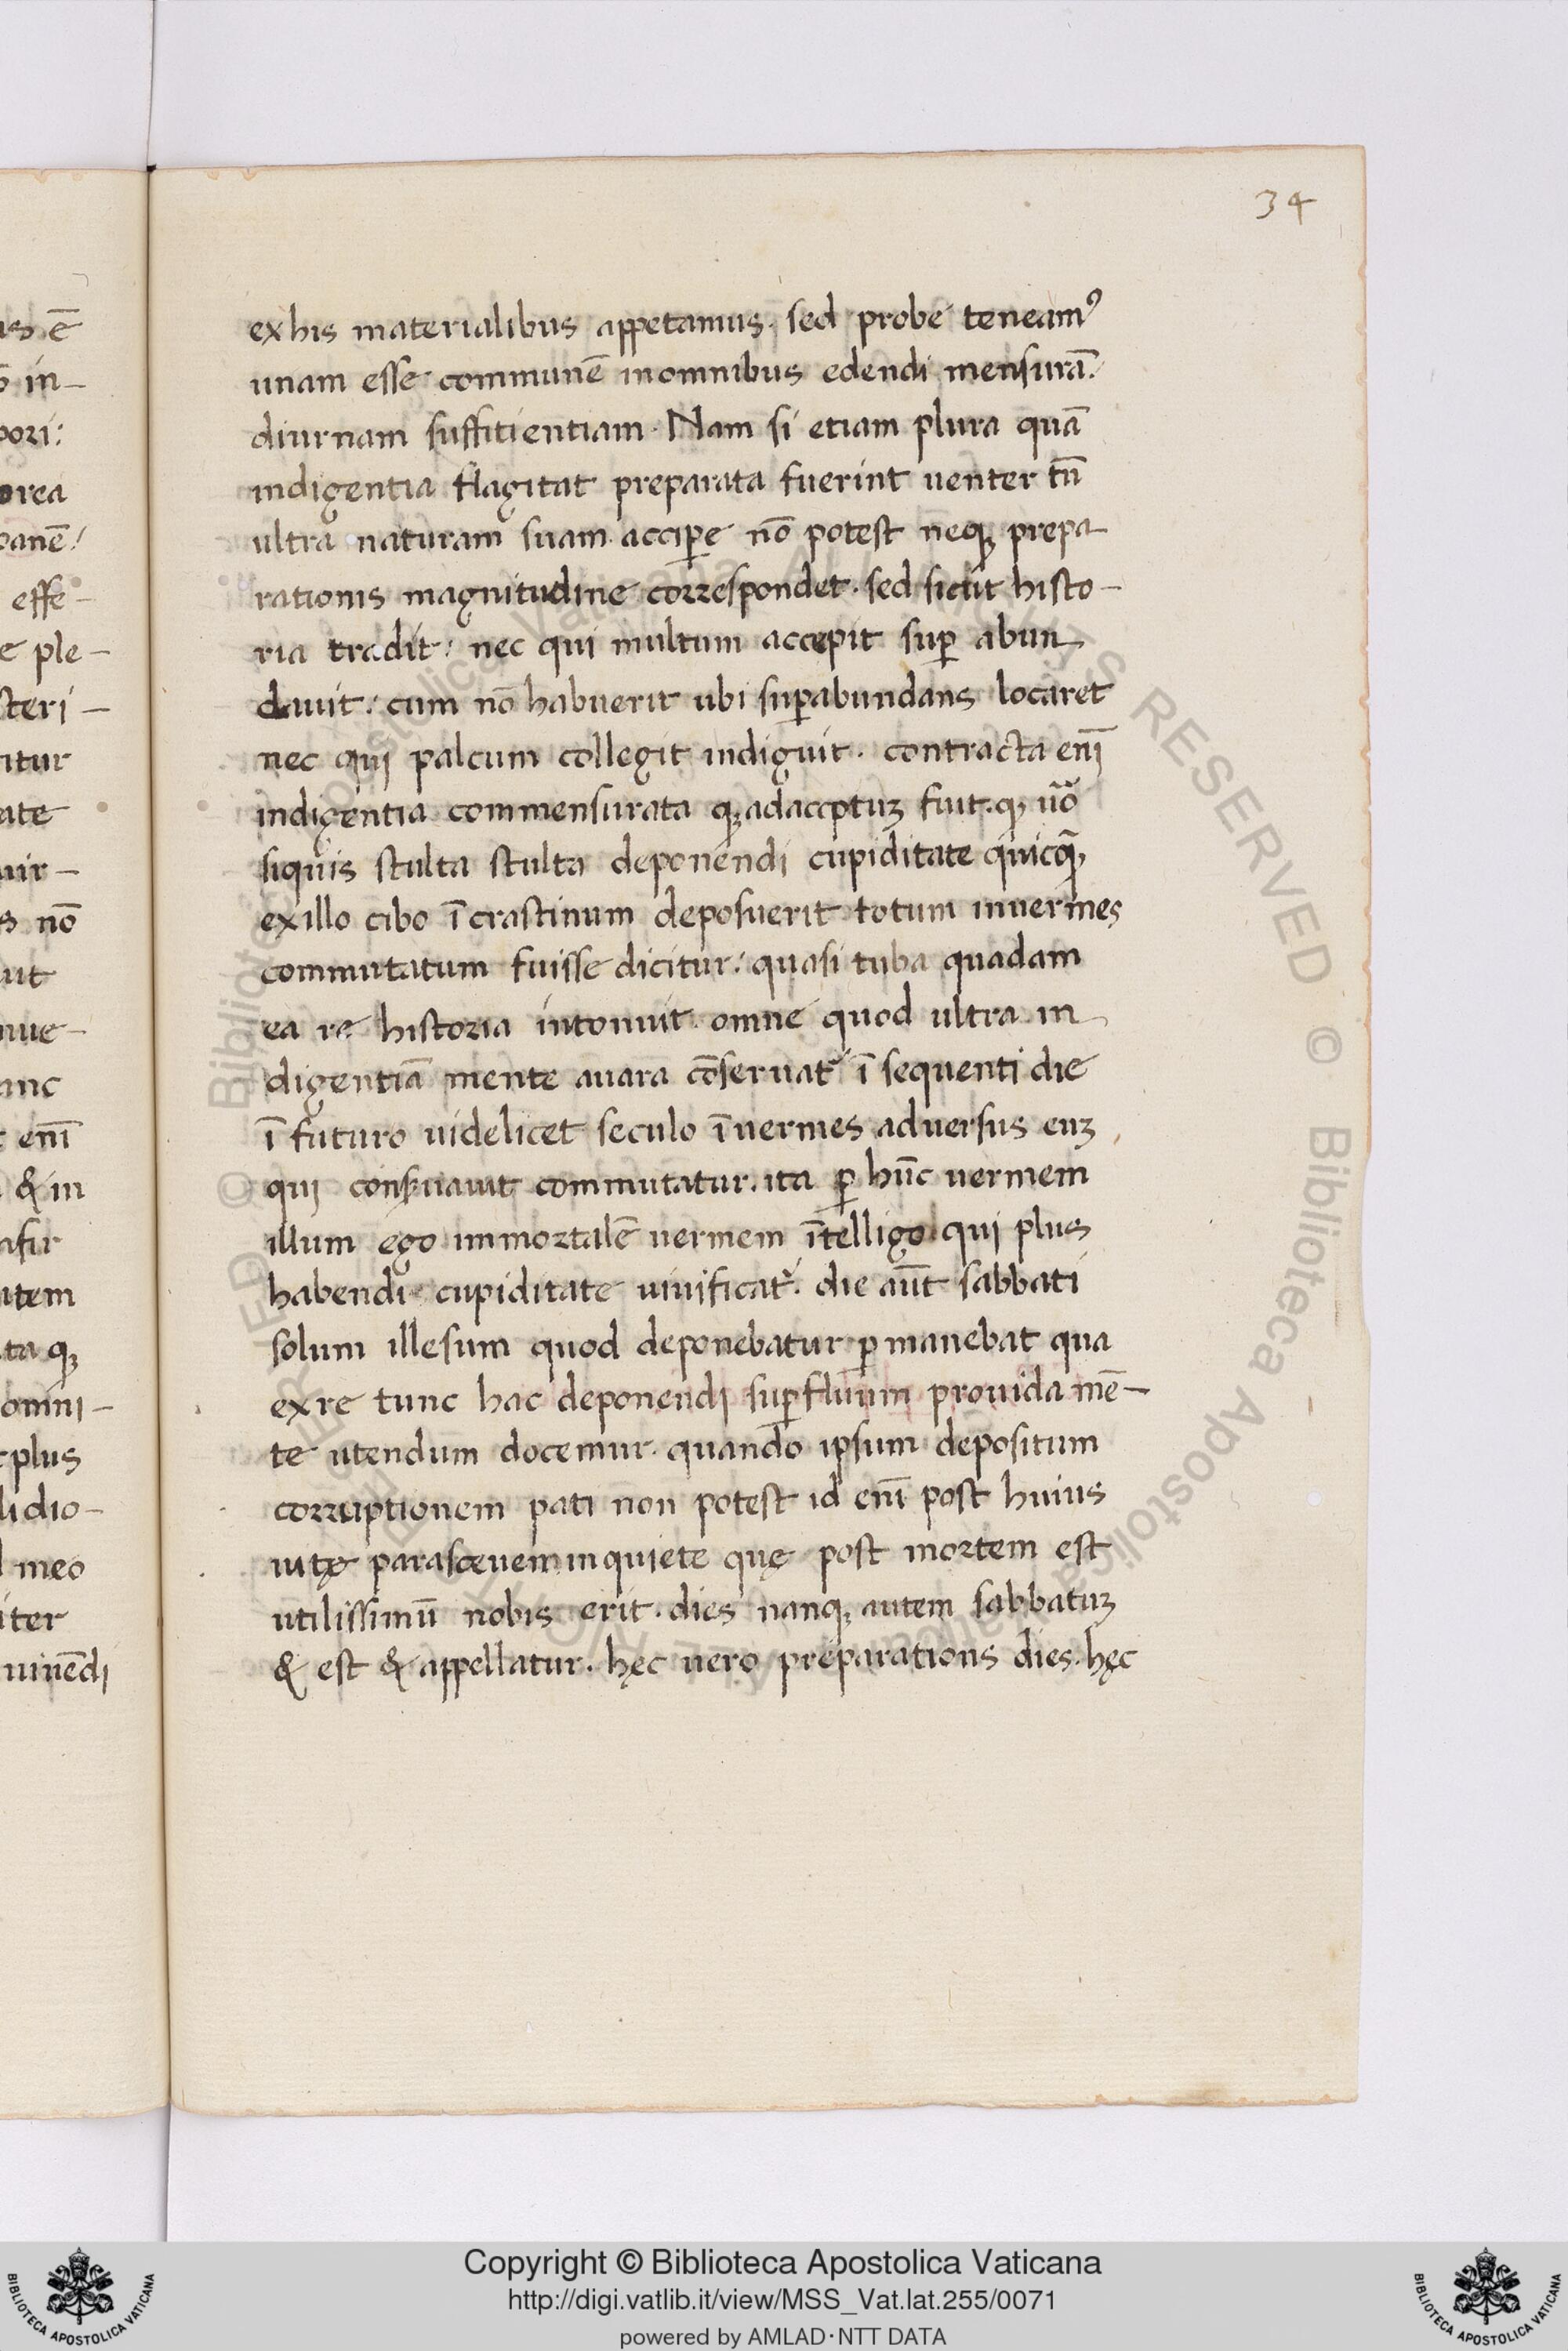 34
exhis materialibus appetamus. sed probe teneamꝰ
unam esse communē inomnibus edendi mensurā:
diurnam suffitientiam. Nam si etiam plura quā
indigentia flagitat preparata fuerint uenter tñ
ultra naturam suam accipere nō potest neqꝫ prepa-
rationis magnitudine correspondet. sed sicut histo-
ria tradit: nec qui multum accepit suꝑ abun-
dauit: cum nō habuerit ubi suꝑabundans locaret
nec qui palcum collegit indiguit. contracta enī
indigentia commensurata qꝫ adacceptuꝫ fuit. qꝫ ũo
siquis stulta stulta deponendi cupiditate quicqꝫ̄
exillo cibo ī crastinum deposuerit totum inuermes
commutatum fuisse dicitur: quasi tuba quadam
ea re historia intonuit. omne quod ultra in-
digentiā mente auara cōseruatr̃ ī sequenti die
ī futuro uidelicet seculo ī uermes aduersus euꝫ
qui conseruauit commutatur. ita ꝑ hūc uermem
illum ego immortalē uermem ītelligo qui plus
habendi cupiditate uiuificatr̃. die aūt sabbati
solum illesum quod deponebatur ꝑmanebat qua
exre tunc hac deponendi suꝑfluum prouida mē-
te utendum docemur. quando ipsum depositum
corruptionem pati non potest id enī post huius
uitę parasceuem inquiete quę post mortem est
utilissimū nobis erit. dies nanqꝫ autem sabbatuꝫ
& est & appellatur. hęc uero preparations dies. hęc
us ē
in-
pori:
orea
panē/
effe-
e ple-
steri-
itur
ate
uir-
s nō
ut
nue-
unc
enī
& in
atem
ta qꝫ
omni-
plus
lidio-
meo
iter
uiuēdi
Copyright © Biblioteca Apostolica Vaticana
http://digi.vatlib.it/view/MSS_Vat.lat.255/0071
powered by AMLAD·NTT DATA
BIBLIOTECA APOSTOLICA VATICANA
BIBLIOTECA APOSTOLICA VATICANA